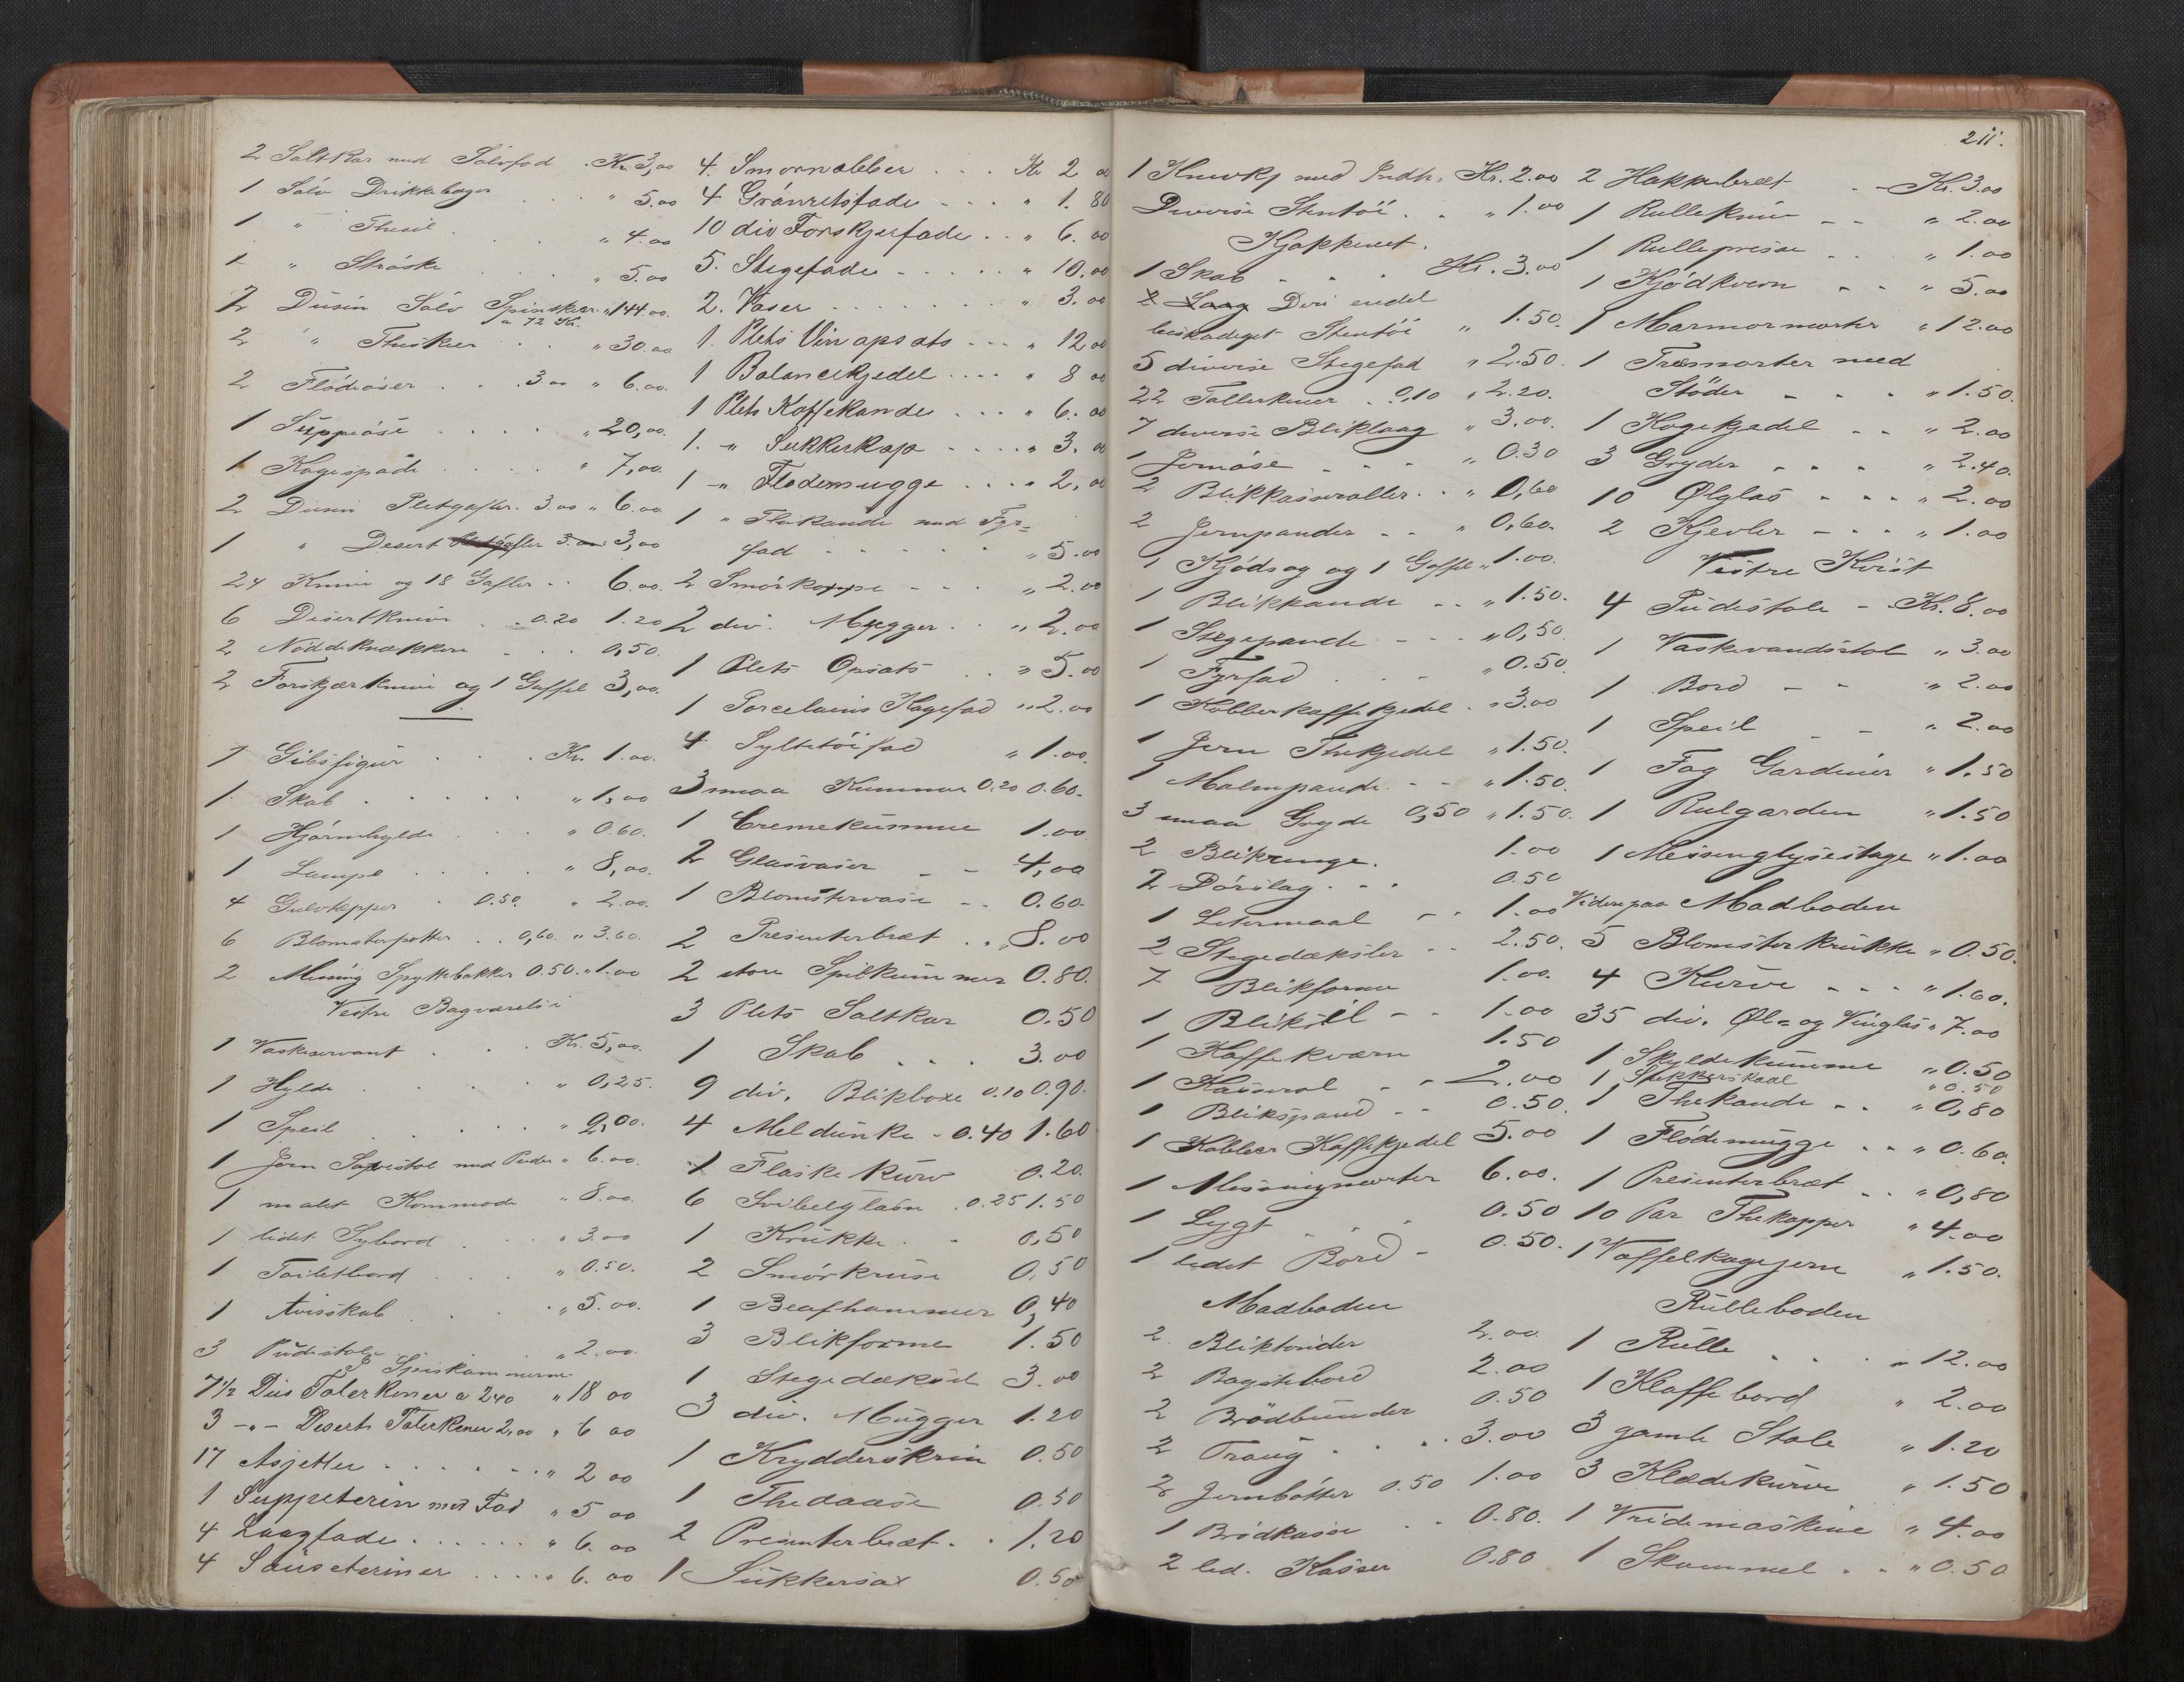 2 Saltkar med Sölvfad . Kr. 3,00
1 Sölv Drikkebæger " 5.00
1 " Thesil " 4.00
1 " Ströske " 5.00
2 Dusin Sölv Spiseskeer " 144.00
a 72 Kr.
2 " Theskeer " 30.00
2 Flödeöser . . 3 00 " 6.00
1 Suppeöse . . . . " 20,00
1 Kagespade . . . . " 7,00
2 Dusin Pletgafler. 3.00 " 6.00
1 " Desert gafler 3,00
24 Knive og 18 Gafler . . 6.00
6 Desertknive . . 0.20 1.20
2 Nöddeknækkere . . . 0,50
2 Forskjærknive og 1 Gaffel 3,00
1 Gibsfigur . . . Kr. 1.00
1 Skab . . . . . " 1,00
1 Hjörnehylde . . . " 0.60
1 Lampe . . . . " 8,00
4 Gulvtepper . 0.50 " 2.00
6 Blomsterpotter . . 0,60 " 3.60
2 Messing Spyttebakker 0.50 " 1.00
Vestre Bagværelse
1 Vaskeservant . . . Kr. 5,00
1 Hylde . . . . " 0,25
1 Speil . . . . " 2,00
1 Jern Sovestol med Puder " 6.00
1 malet Kommode " 8.00
1 lidet Sybord . . " 3.00
1 Toiletbord . . . " 0.50
1 Avisskab . . . " 5.00
3 Pudestole " 2.00
I Spiskammerne
7 1/2 Dus Talerkener a 2 40 " 18 00
3 -"- Desert Talerkener 2,00 " 6 00
17 Asjetter . . . . . . " 2 00
1 Suppeterin med Fad " 5 00
4 Laagfade . . . . . . " 6. 00
4 Sauseteriner . . . . " 6. 00
4. Smörnabber . . . Kr 2 00
4 Grönretsfade . . . " 1. 80
10 div Forskjerfade . . " 6. 00
5. Stegefade . . . . . " 10.00
2. Vaser . . . . . . " 3. 00
1. Plets Vinopsats . . . " 12 00
1 Balancekjedel . . . . " 8 00
1 Plets Kaffekande . . . " 6. 00
1. " Sukkerkop . . . . " 3. 00
1 -" Flødemugge . . . . " 2, 00
1 " Thekande med Fyr=
fad . . . . . " 5.00
2 Smörkoppe - - - " 2.00
2 div. Mugger . . " 2.00
1 Plets Opsats . . " 5.00
1 Porcelains Kagefad " 2.00
4 Syltetöifad " 1.00
3 smaa Kummer 0.20 0.60
1 Cremekumme 1.00
2 Glasvaser - - 4,00
1 Blomstervase - . 0.60
2 Presenterbræt . . " 8.00
2 store Spilkummer 0.80
3 Plets Saltkar 0.50
1 Skab . . . 3.00
9 div. Blikboxe 0.10 0.90
4 Meldunke - 0.40 1.60
1 Flaskekurv 0.20
6 Svibelglasse . 0.25 1.50
1 Krukke . - 0,50
2 Smörkruse 0,50
1 Beafhammer 0,40
3 Blikforme 1.50
1 Stegedæksel 3.00
3 div. Mugger 1.20
1 Krydderskrin 0.50
1 Thedaase 0.50
2 Presenterbræt . . 1.20
1 Sukkersax 0.50
211.
1 med Indh. Kr. 2.00
Diverse Stentöi . . " 1.00
Kjøkkenet.
1 Skab - . . Kr. 3.00
2 Laag Deri endel
beskadiget Stentöi " 1.50
5 diverse Stegefad " 2.50
22 Tallerkener . 0,10 " 2.20
7 diverse Bliklaag " 3.00
1 Jernöse - - - " 0.30
2 Blikkasseroller . . " 0,60
2 Jernpander - - " 0,60
1 Kjødsag og 1 Gaffel " 1.00
1 Blikkande - - " 1.50
1 Stegepande - - - " 0,50
1 Fyrfad . . . " 0.50
1 Kobberkaffekjedel . " 3.00
1 Jern Thekjedel " 1.50
1 Malmpande . - - " 1.50
3 smaa Gryde 0,50 " 1.50
2 Blikringe . 1.00
2 Dörslag . - . 0.50
1 Litermaal - - 1.00
2 Stegedæksler - - 2.50
7 Blikforme 1.00
1 Bliksil - - 1.00
1 Kaffekværn 1.50
1 Kasserol - - 2.00
1 Blikspand - - 0.50
1 Kobber Kaffekjedel 5.00
1 Messingmorter 6.00
1 Lygt . . . 0.50
1 lidet Bord - 0.50
Madboden
2 Bliktrider 2.00
2 Bagstebord 2.00
2 Brödbunder 0.50
2 Traug . . . . 3.00
2 Jernbötter 0.50 1.00
1 Brödkasse . . 0.80
2 led. Kasser 0.80
2 Hakkebræt . . - Kr. 3.00
1 Rullekniv - - " 2.00
1 Rullepresse . . " 1.00
1 Kjödkvern - - " 5.00
1 Marmormorter " 12.00
1 Træmorter med
Stöder - - - " 1.50
1 Kogekjedel - - " 2.00
3 Gryder - - - " 2.40
10 Ølglas - - - " 2.00
2 Kjevler - - - " 1.00
Vestre Kvist
4 Pudestole - - Kr. 8.00
1 Vaskevandsstol " 3.00
1 Bord - - " 2.00
1 Speil - - " 2.00
1 Fag Gardiner " 1.50
1 Rulgardin " 1.50
1 Messinglysestage " 1.00
Videre paa Madboden
5 Blomsterkrukke " 0.50
4 Kurve - - - " 1.60
35 div. Øl- og Vinglas " 7.00
1 Skyldekumme " 0.50
1 Sukkerskaal " 0.50
1 Thekande - . " 0,80
1 Flödemugge . . " 0.60
1 Presenterbræt . . " 0,80
10 Par Thekopper " 4.00
1 Vaffelkagejern " 1.50
Rulleboden
1 Rulle . . . " 12.00
1 Klaffebord " 2.00
3 gamle Stole " 1.20
3 Klædekurve " 1.50
1 Vridemaskine " 4.00
1 Skammel . . " 0.50